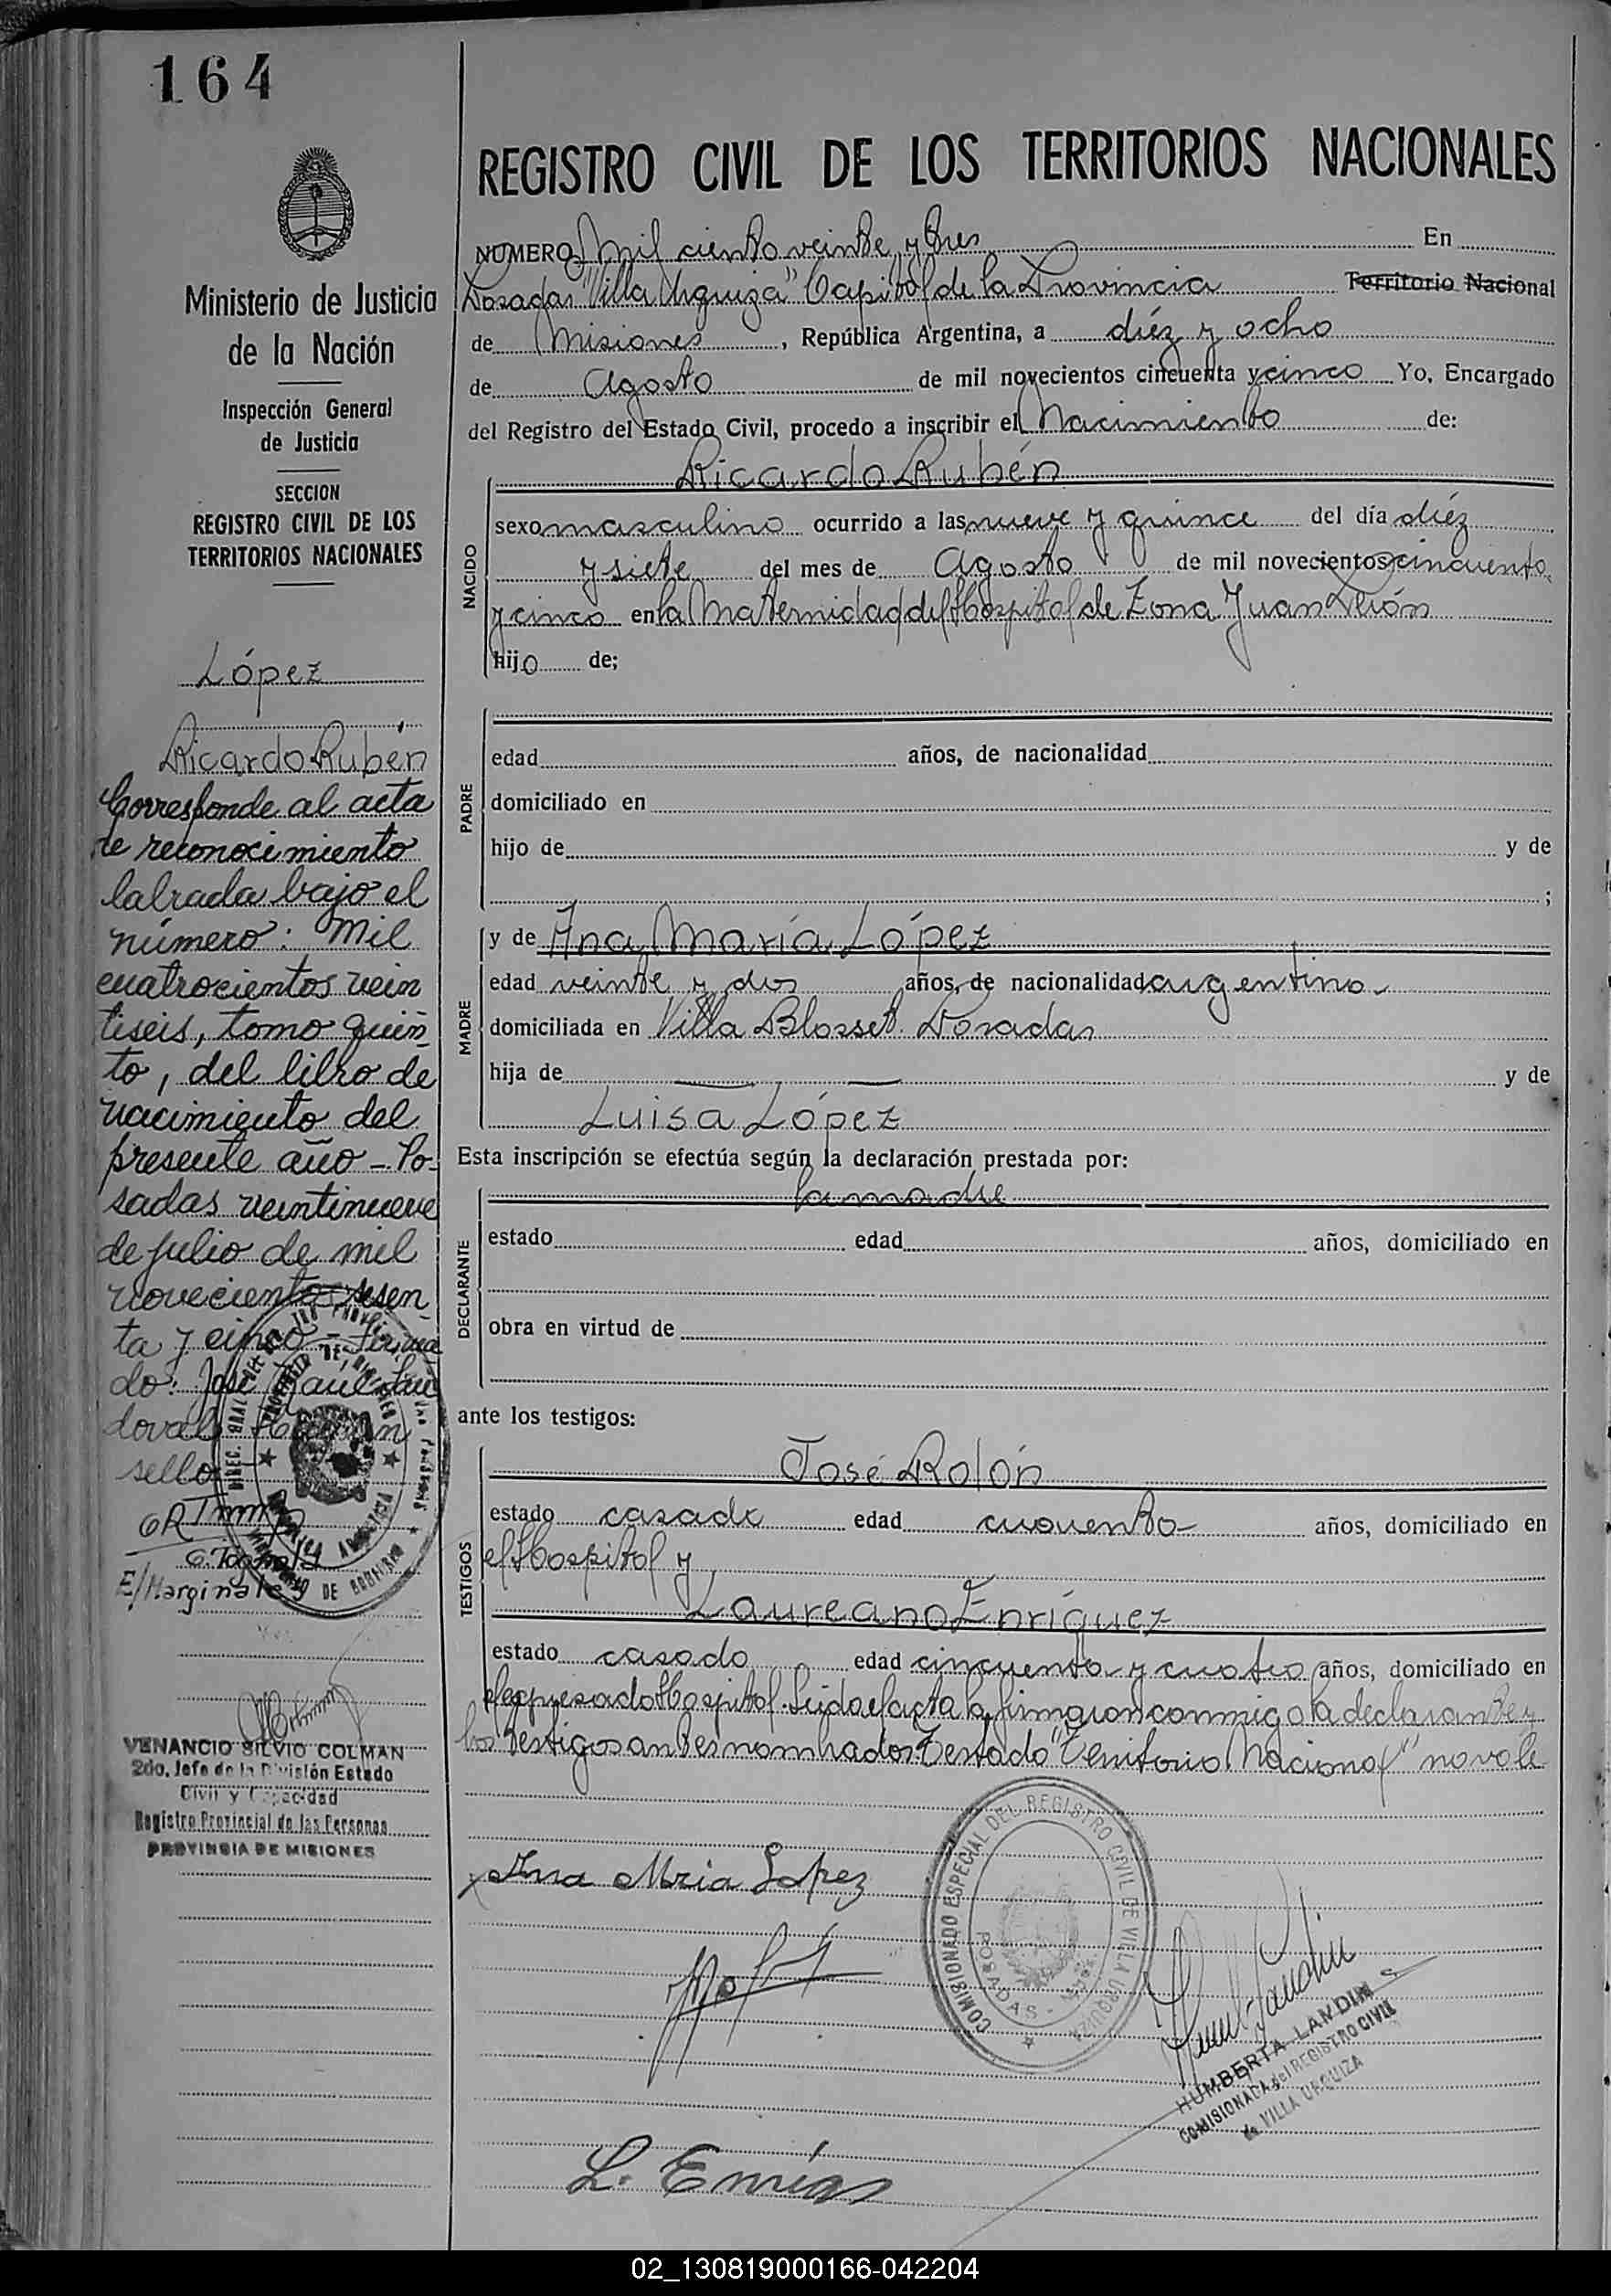 164
Ministerio de Justicia
de la Nación
Inspección General
de Justicia
SECCION
REGISTRO CIVIL DE LOS
TERRITORIOS NACIONALES
López
Ricardo Rubén
Corresponde al acta
de reconocimiento
labrada bajo el
número: mil
cuatrocientos vein
tiseis, tomo quin
to, del libro de
nacimiento del
presente año - Po-
sadas veintinueve
de julio de mil
novecientos sesen
ta y cinco - Firma
do: José Raúl San
doval
sello
E/Marginales
VENANCIO SILVIO COLMAN
2do. Jefe de la División Estado
Civil y Capacidad
Registro Provincial de las Personas
PROVINCIA DE MISIONES
REGISTRO CIVIL DE LOS TERRITORIOS NACIONALES
NUMERO Mil ciento veinte y tres En
Posadas "Villa Urquiza" Capital de la Provincia Territorio Nacional
de Misiones, República Argentina, a diéz y ocho
de Agosto de mil novecientos cincuenta y cinco Yo, Encargado
del Registro del Estado Civil, procedo a inscribir el Nacimiento de:
NACIDO
Ricardo Rubén
sexo masculino ocurrido a las nueve y quince del día diéz
y siete del mes de Agosto de mil novecientos cincuenta
y cinco en la Maternidad del Hospital de Zona Juan Perón
hijo de;
PADRE
edad años, de nacionalidad
domiciliado en
hijo de y de
;
MADRE
y de Ana María López
edad veinte y dos años, de nacionalidad argentina
domiciliada en Villa Blosset. Posadas
hija de y de
Luisa López
Esta inscripción se efectúa según la declaración prestada por:
DECLARANTE
la madre
estado edad años, domiciliado en
obra en virtud de
ante los testigos:
TESTIGOS
José Rolón
estado casado edad cuarenta años, domiciliado en
el Hospital y
Laureano Enríquez
estado casado edad cincuenta y cuatro años, domiciliado en
el expresado Hospital. Leida el acta la firmaron conmigo la declarante y
los testigos antes nombrados Testado "Territorio Nacional" no vale
Ana Mria Lopez
COMISIONADO ESPECIAL DEL REGISTRO CIVIL DE VILLA URQUIZA
POSADAS
HUMBERTA LANDIN
COMISIONADA del REGISTRO CIVIL
de VILLA URQUIZA
02_130819000166-042204